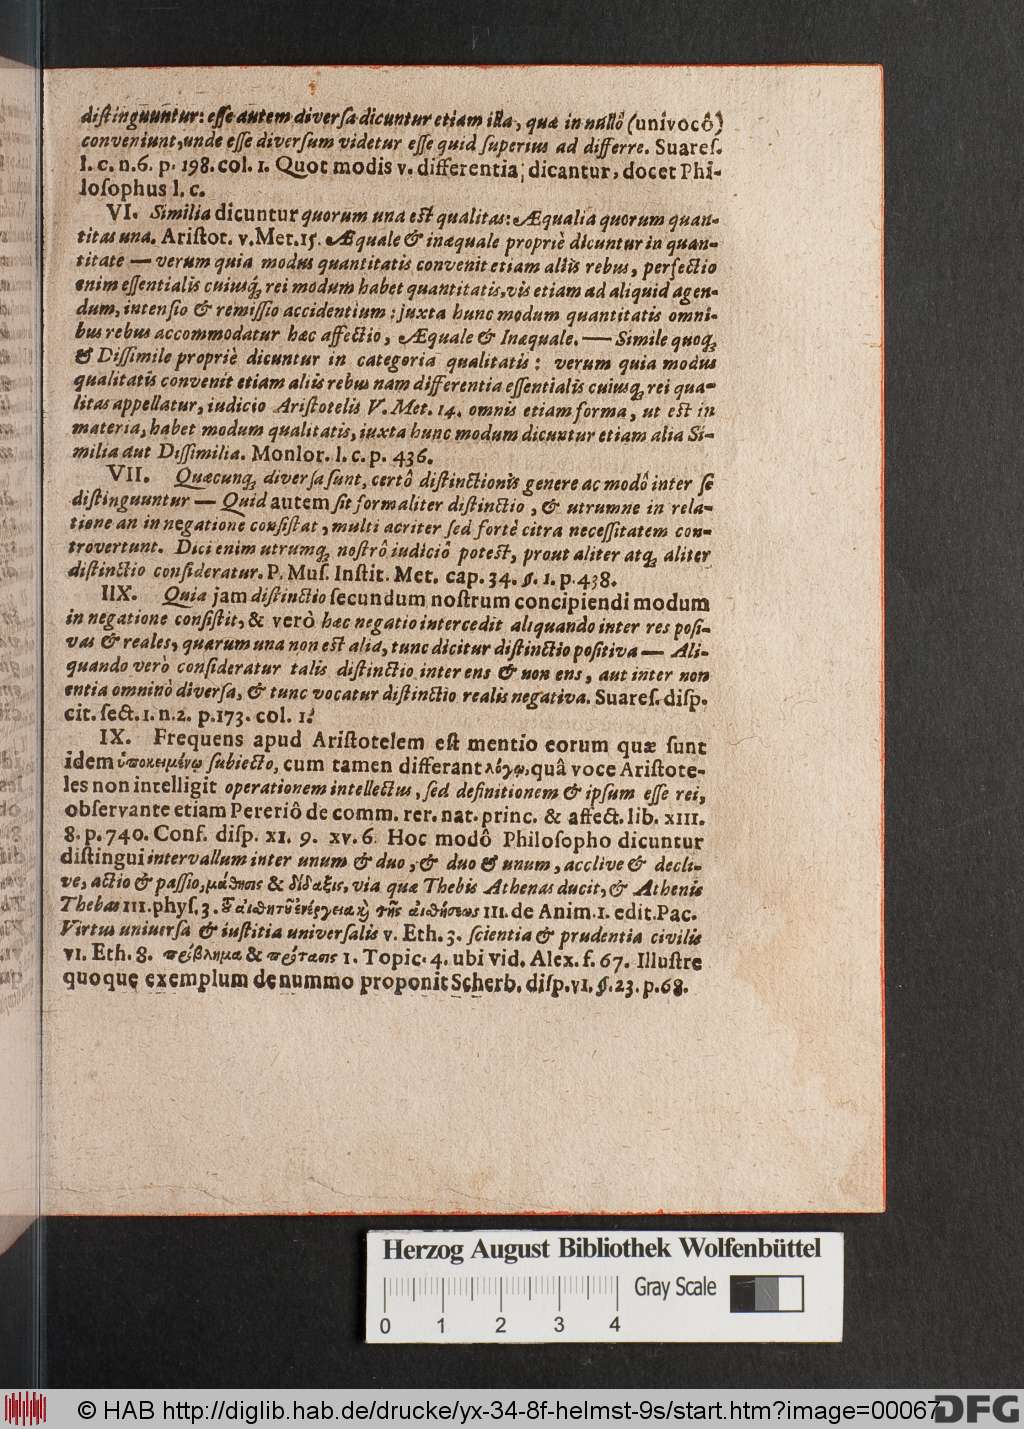 distinguuntur: esse autem diversa dicuntur etiam illa, quæ in nullô (univocô)
conveniunt, unde esse diversum videtur esse quid superius ad differre. Suares.
l. c. n. 6. p. 198. col. 1. Quot modis v. differentia dicantur, docet Phi-
losophus l. c.
VI. Similia dicuntur quorum una est qualitas: Æqualia quorum quan-
titas una. Aristot. v. Met. 15. Æquale & inæquale propriè dicuntur in quan-
titate — verum quia modus quantitatis convenit etiam aliis rebus, perfectio
enim essentialis cuiusq; rei modum habet quantitatis, vis etiam ad aliquid agen-
dum, intensio & remissio accidentium: juxta hunc modum quantitatis omni-
bus rebus accommodatur hæc affectio, Æquale & Inæquale. — Simile quoq;
& Dissimile propriè dicuntur in categoria qualitatis: verum quia modus
qualitatis convenit etiam aliis rebus nam differentia essentialis cuiusq; rei qua-
litas appellatur, iudicio Aristotelis V. Met. 14. omnis etiam forma, ut est in
materia, habet modum qualitatis, iuxta hunc modum dicuntur etiam alia Si-
milia aut Dissimilia. Monlor. l. c. p. 436.
VII. Quæcunq; diversa sunt, certô distinctionis genere ac modô inter se
distinguuntur — Quid autem sit formaliter distinctio, & utrumne in rela-
tione an in negatione consistat, multi acriter sed fortè citra necessitatem con-
trovertunt. Dici enim utrumq; nostrô iudiciô potest, prout aliter atq; aliter
distinctio consideratur. P. Mus. Instit. Met. cap. 34. §. 1. p. 438.
IIX. Quia jam distinctio secundum nostrum concipiendi modum
in negatione consistit, & verò hæc negatio intercedit aliquando inter res posi-
vas & reales, quarum una non est alia, tunc dicitur distinctio positiva — Ali-
quando verò consideratur talis distinctio inter ens & non ens, aut inter non
entia omninò diversa, & tunc vocatur distinctio realis negativa. Suares. disp.
cit. sect. 1. n. 2. p. 173. col. 1.
IX. Frequens apud Aristotelem est mentio eorum quæ sunt
idem ὑποκειμένῳ subiecto, cum tamen differant λόγῳ, quâ voce Aristote-
les non intelligit operationem intellectus, sed definitionem & ipsum esse rei,
observante etiam Pereriô de comm. rer. nat. princ. & affect. lib. XIII.
8. p. 740. Conf. disp. XI. 9. XV. 6. Hoc modô Philosopho dicuntur
distingui intervallum inter unum & duo, & duo & unum, acclive & decli-
ve, actio & passio, μάθησις & δίδαξις, via quæ Thebis Athenas ducit, & Athenis
Thebas III. phys. 3. Τȣ͂ αἰσθητȣ͂ ἐνέργεια ϗ̀ τῆς αἰσθήσεως III. de Anim. 1. edit. Pac.
Virtus universa & iustitia universalis v. Eth. 3. scientia & prudentia civilis
VI. Eth. 8. πρόβλημα & πρότασις 1. Topic. 4. ubi vid. Alex. f. 67. Illustre
quoque exemplum de nummo proponit Scherb. disp. VI. §. 23. p. 68.
Herzog August Bibliothek Wolfenbüttel
Gray Scale
0 1 2 3 4
© HAB http://diglib.hab.de/drucke/yx-34-8f-helmst-9s/start.htm?image=00067
DFG